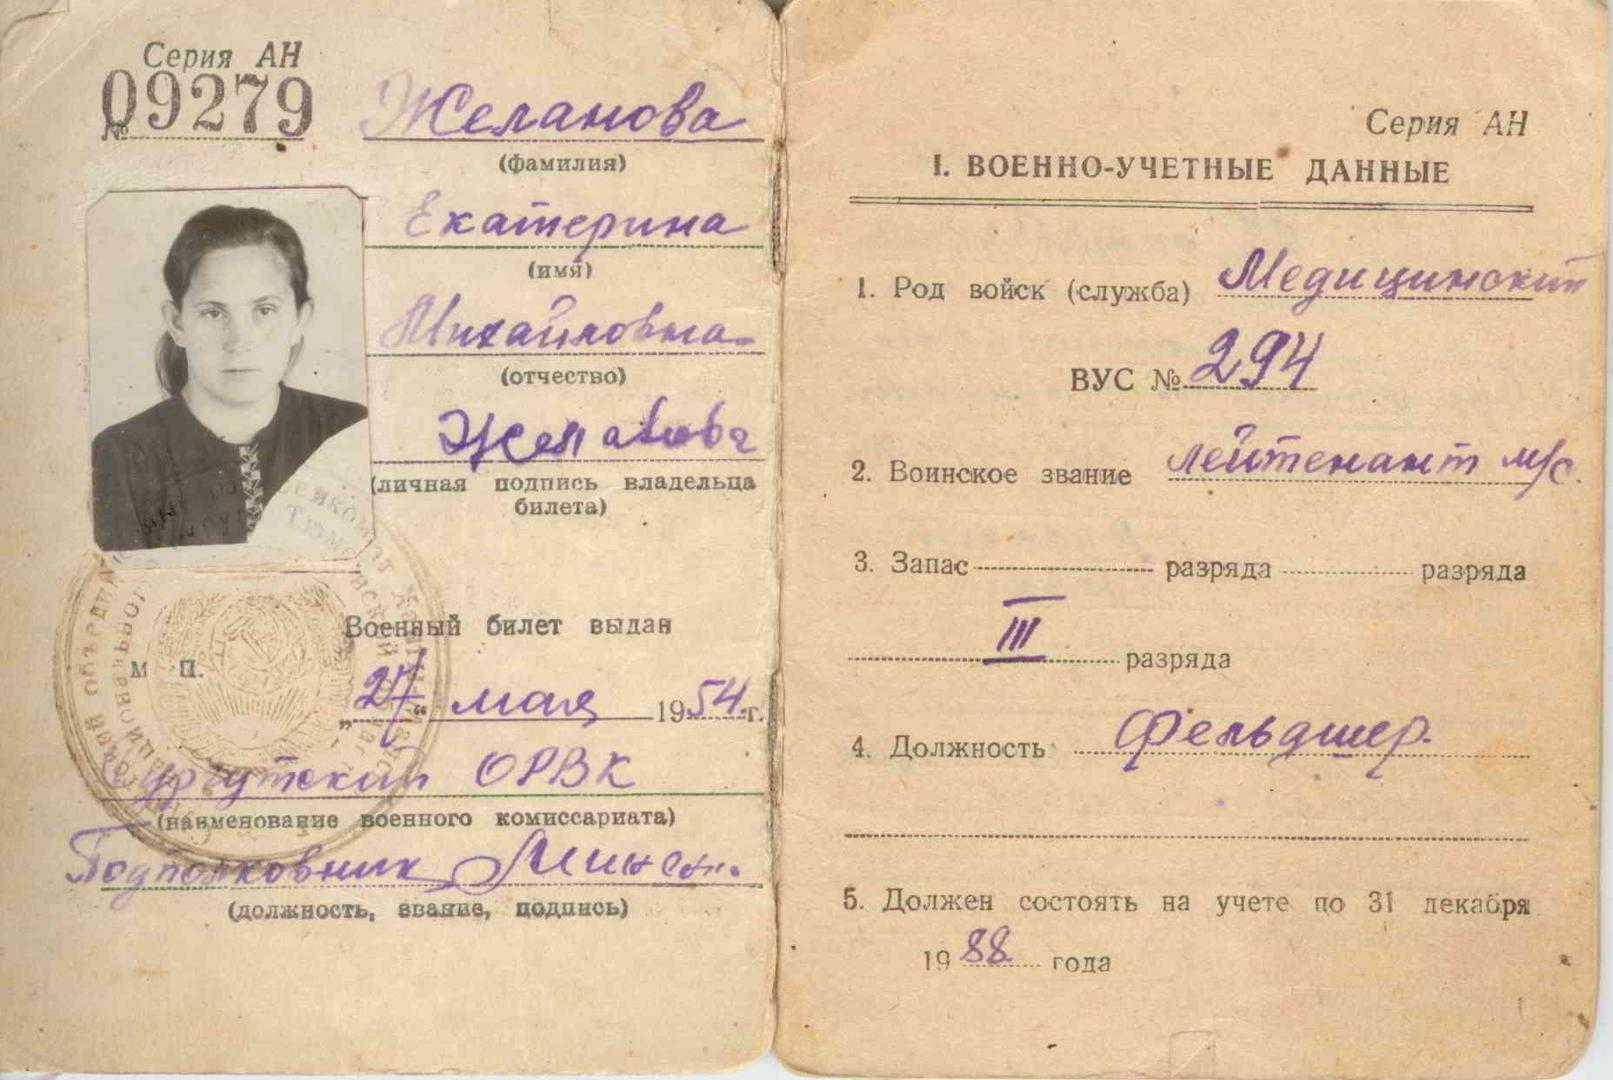 Серия АН
№ 09279
Желанова
(фамилия)
Екатерина
(имя)
Михайловна
(отчество)
Желанова
(личная подпись владельца
билета)
Военный билет выдан
М П.
„27“ мая 1954 г.
Сургутский ОРВК
(наименование военного комиссариата)
Подполковник
(должность, звание, подпись)
Серия АН
I. ВОЕННО-УЧЕТНЫЕ ДАННЫЕ
1. Род войск (служба) Медицинский
ВУС № 294
2. Воинское звание лейтенант м/с.
3. Запас разряда разряда
III разряда
4. Должность Фельдшер.
5. Должен состоять на учете по 31 декабря
1988 года